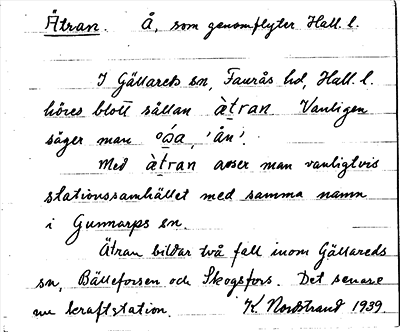 Ätran. Å, som genomflyter Hall. l.
I Gällareds sn, Faurås hd, Hall. l.
höres blott sällan àtran. Vanligen
säger man 'ån'.
Med àtran avser man vanligtvis
stationssamhället med samma namn
i Gunnarps sn.
Ätran bildar två fall inom Gällareds
sn, Bälleforsen och Skogsfors. Det senare
nu kraftstation. K. Nordstrand 1939.